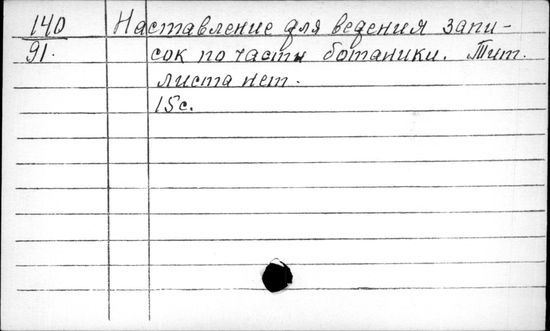 140 Наставление для ведения запи-
91. сок по части ботаники. Тит.
листа нет.
15с.